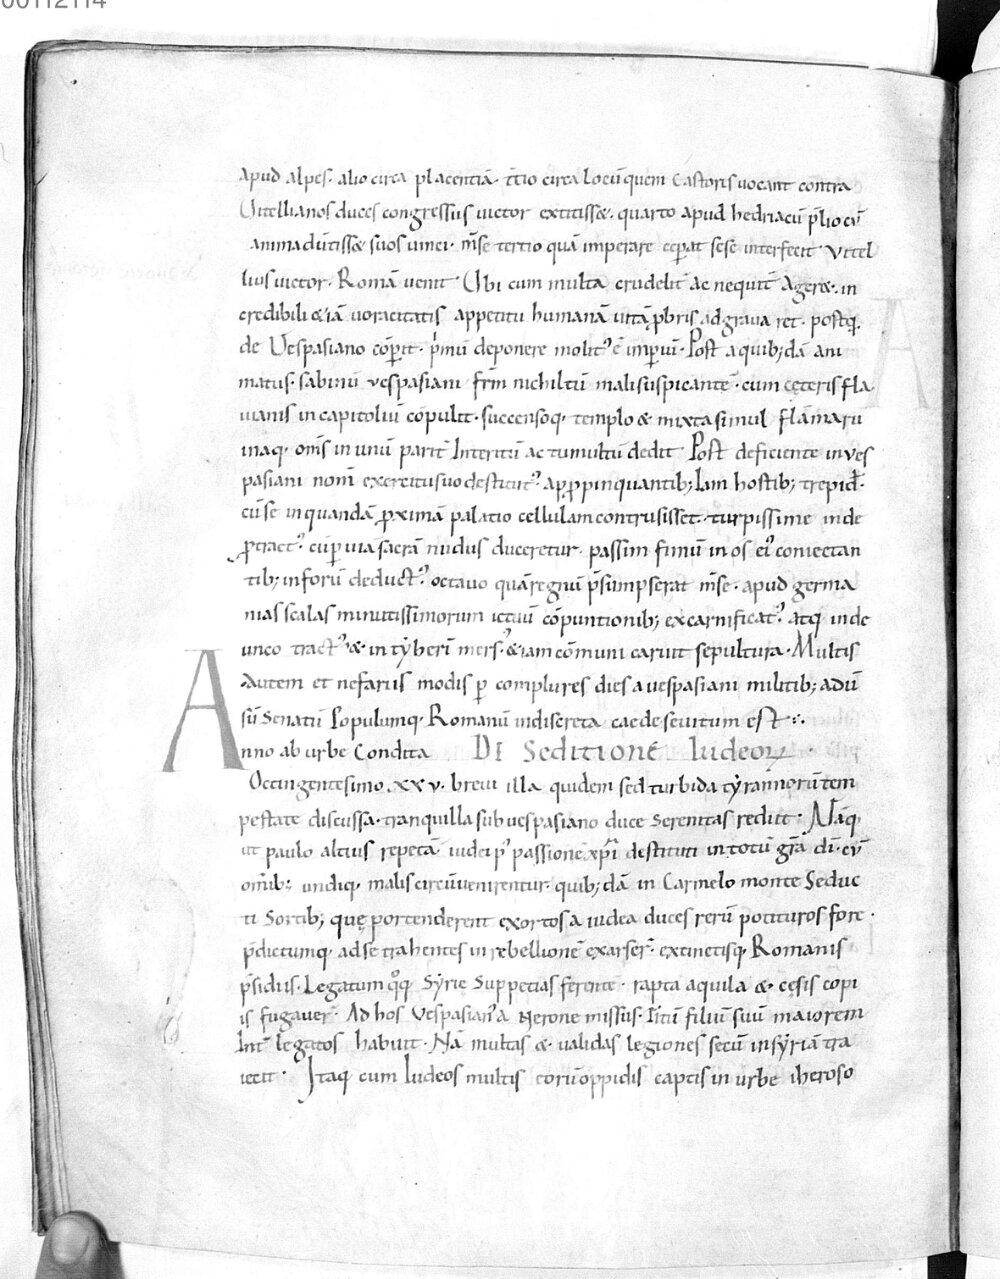 00112114
apud alpes. alio circa placentiā. t̄tio circa locū quem Castoris uocant contra
Uitellianos duces congressus uictor extitisse&. quarto apud hedriacū p̄lio cū
animaduūtiss& suos uinci. m̄se tertio quā imperare cęperat sese interfecit. Vitel
lius uictor. Romā uenit. Ubi cum multa crudelit̄ ac nequit̄ ager&. in
credibili &iā uoracitatis appetitu humanā uitā ꝓbris adgrauaret. postq̄
de Uespasiano cōpit. p̄mū deponere molit᾽ ē imperiū. Post a quib;dā ani
matus. sabinū uespasiani frm̄ nichil tū mali suspicantē. cum cęteris fla
uianis in capitoliū cōpulit. succensoq; templo & mixta simul flāma ru
inaq; om̄s in unū parit̄ Interitū ac tumultū dedit. Post deficiente in ues
pasiani nom̄ exercitu suo destitut᾽. appropinquantib; Iam hostib; trepid᾽
cū se in quandā ꝓximā palatio cellulam contrusisset. turpissime inde
ꝓtract᾽. cū ꝑ uia sacrā nudus duceretur. passim fimū in os ei᾽ coniectan
tib; in forū deduct᾽. octauo quā regnū p̄sumpserat m̄se. apud germa
nias scalas minutissimorum ictuū cōpuntionib; excarnificat᾽. atq; inde
unco tract᾽ &. in tẏberī mers᾽. &iam cōmuni caruit sepultura. Multis
autem et nefariis modis ꝑ complures dies a uespasiani militib; aduū
sū Senatū Populumq; Romanū indiscreta caede seuitum est:.
Anno ab urbe Condita DE Seditionē Iudeoꝝ
Octingentesimo. xxv. breui illa quidem sed turbida tẏrannorū tem
pestate discussa. tranquilla sub uespasiano duce Serenitas rediit. Nāq;
ut paulo altius repetā. iudei p᾽ passionē xp̄i destituti in totū grā di. cū
omīb; undiq; malis circūuenirentur. quib;dā in Carmelo monte Seduc
ti Sortib; quę portenderent exortos a iudea duces rerū potituros fore.
p̄dictumq; ad se trahentes in rebellionē exarser̄. extinctisq; Romanis
p̄sidiis. Legatum q̊q; Sẏrie Suppetias ferentē. rapta aquila &. cęsis copi
is fugauer̄. Ad hos Vespasian᾽ a Nerone missus. Titū filiū suū maiorem
Int̄ legatos habuit. Nā multas & ualidas legiones secū in sẏriā tra
iecit. Itaq; cum Iudeos multis eorū oppidis captis in urbe iheroso